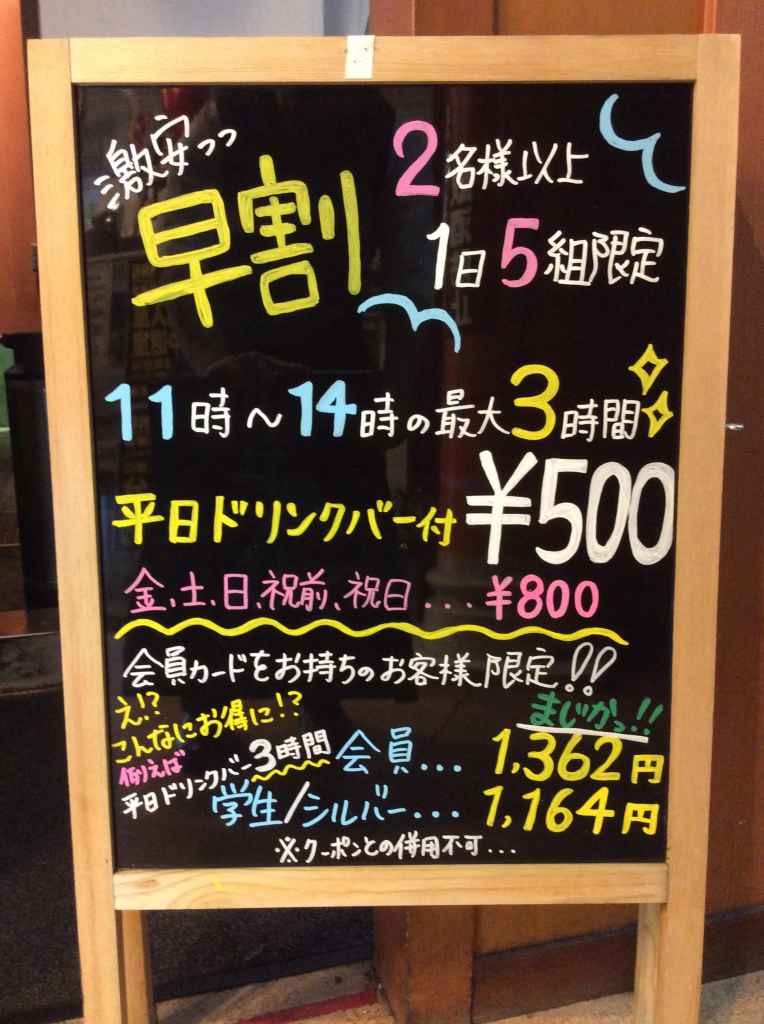 激安っっ
早割
2名様以上
1日5組限定
11時～14時の最大3時間
平日ドリンクバー付 ¥500
金、土、日、祝前、祝日...¥800
会員カードをお持ちのお客様限定!!
え!?
こんなにお得に!?
まじかっ!!
例えば
平日ドリンクバー3時間
会員... 1,362円
学生/シルバー... 1,164円
※クーポンとの併用不可...